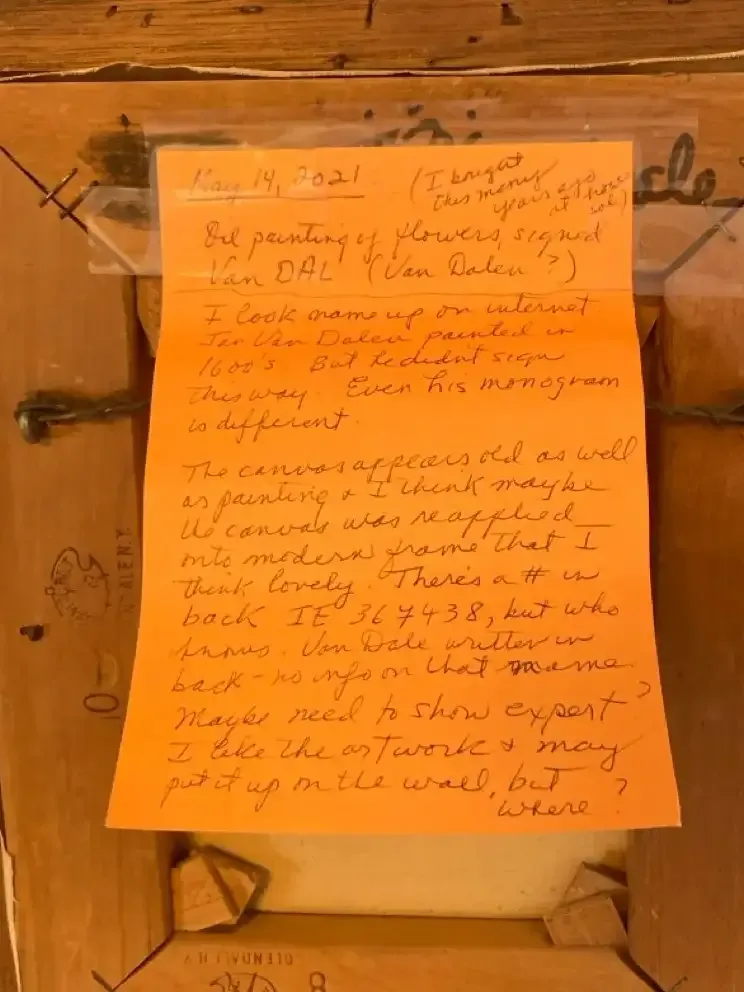 May 14, 2021
(I bought
this many
years ago
at house
sale)
Oil painting of flowers, signed
Van DAL (Van Dalen ?)
I look name up on internet
Jan Van Dalen painted in
1600's. But he didn't sign
this way. Even his monogram
is different.
The canvas appears old as well
as painting & I think maybe
the canvas was reapplied
onto modern frame that I
think lovely. There's a # in
back IE 367438, but who
knows. Van Dale written in
back - no info on that name.
Maybe need to show expert?
I like the artwork & may
put it up on the wall, but
where?
10
GLENDALE N.Y.
8